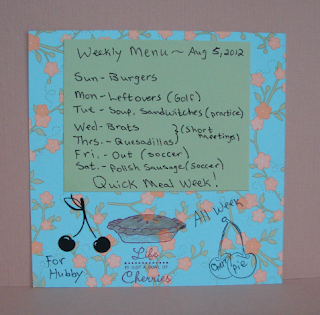 Weekly Menu ~ Aug 5, 2012
Sun - Burgers
Mon - Leftovers (Golf)
Tue - Soup, Sandwitches (practice)
Wed - Brats
Thrs. - Quesadillas
} (Short meetings)
Fri. - Out (soccer)
Sat. - Polish Sausage (soccer)
Quick Meal Week!
All Week
For Hubby
Life
IS JUST A BOWL OF
Cherries
pie